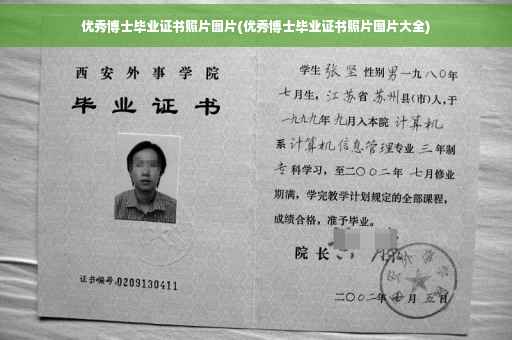 优秀博士毕业证书照片图片(优秀博士毕业证书照片图片大全)
西安外事学院
毕业证书
证书编号:0209130411
学生 张坚 性别男一九八〇年
七月生,江苏省 苏州县(市)人,于
一九九九年九月入本院 计算机
系 计算机信息管理专业 三年制
专科学习,至二〇〇二年 七月修业
期满,学完教学计划规定的全部课程,
成绩合格,准予毕业。
院长
二〇〇二年 月五日